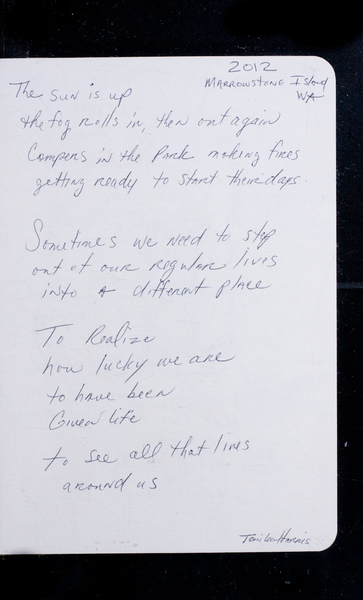 2012
Marrowstone Island
WA
The sun is up
the fog rolls in, then out again
Campers in the Park making fires
getting ready to start their days.
Sometimes we need to step
out of our regular lives
into a different place
To Realize
how lucky we are
to have been
Given life
to see all that lives
around us
Harris